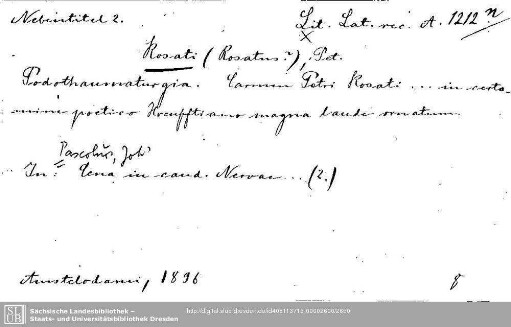 Nebentitel 2.
Lit. Lat. rec. A. 1212 n
X
Rosati (Rosatus?), Pet.
Podothaumaturgia. Carmen Petri Rosati ... in certa-
mine poetico Hoeufftiano magna laude ornatum.
Pascolus, Joh
In: Cena in caud. Nervae ... (2.)
Amstelodami, 1896
8
Sächsische Landesbibliothek –
Staats- und Universitätsbibliothek Dresden